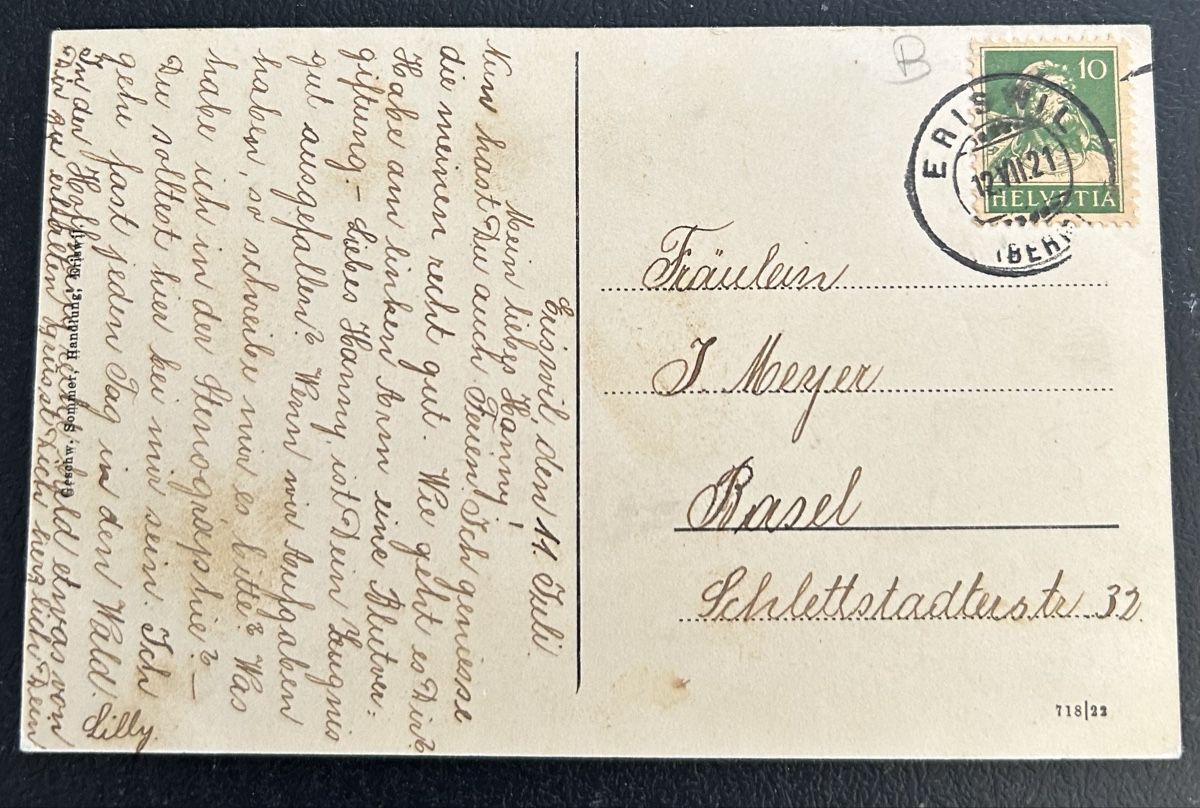 Eriswil, den 11. Juli.
Mein liebes Hanny!
Nun hast Du auch Ferien. Ich geniesse
die meinen recht gut. Wie geht es Dir?
Habe am linken Arm eine Blutver-
giftung. – Liebes Hanny, ist Dein Zeugnis
gut ausgefallen? Wenn wir Aufgaben
haben, so schreibe mir es, bitte? Was
habe ich in der Stenographie? –
Du solltest hier bei mir sein. Ich
gehe fast jeden Tag in den Wald.
In der Hoffnung bald etwas von
Dir zu erhalten grüsst Dich herzlich Dein
Lilly.
Geschw. Sommer, Handlung, Eriswil.
B
10
HELVETIA
ERISWIL
12.VII.21
(BERN)
Fräulein
J Meyer
Basel
Schlettstadterstr 32.
718|22